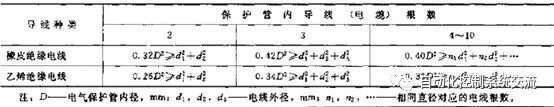 导线种类
保护管内导线（电缆）根数
2
3
4～10
橡皮绝缘电线
0.32D²⩾d₁²+d₂²
0.42D²⩾d₁²+d₂²+d₃²
0.40D²⩾n₁d₁²+n₂d₂²+…
乙烯绝缘电线
0.26D²⩾d₁²+d₂²
0.34D²⩾d₁²+d₂²+d₃²
注：D——电气保护管内径，mm；d₁，d₂，d₃——电线外径，mm；n₁，n₂，……——相同直径对应的电线根数。
自动化控制系统交流